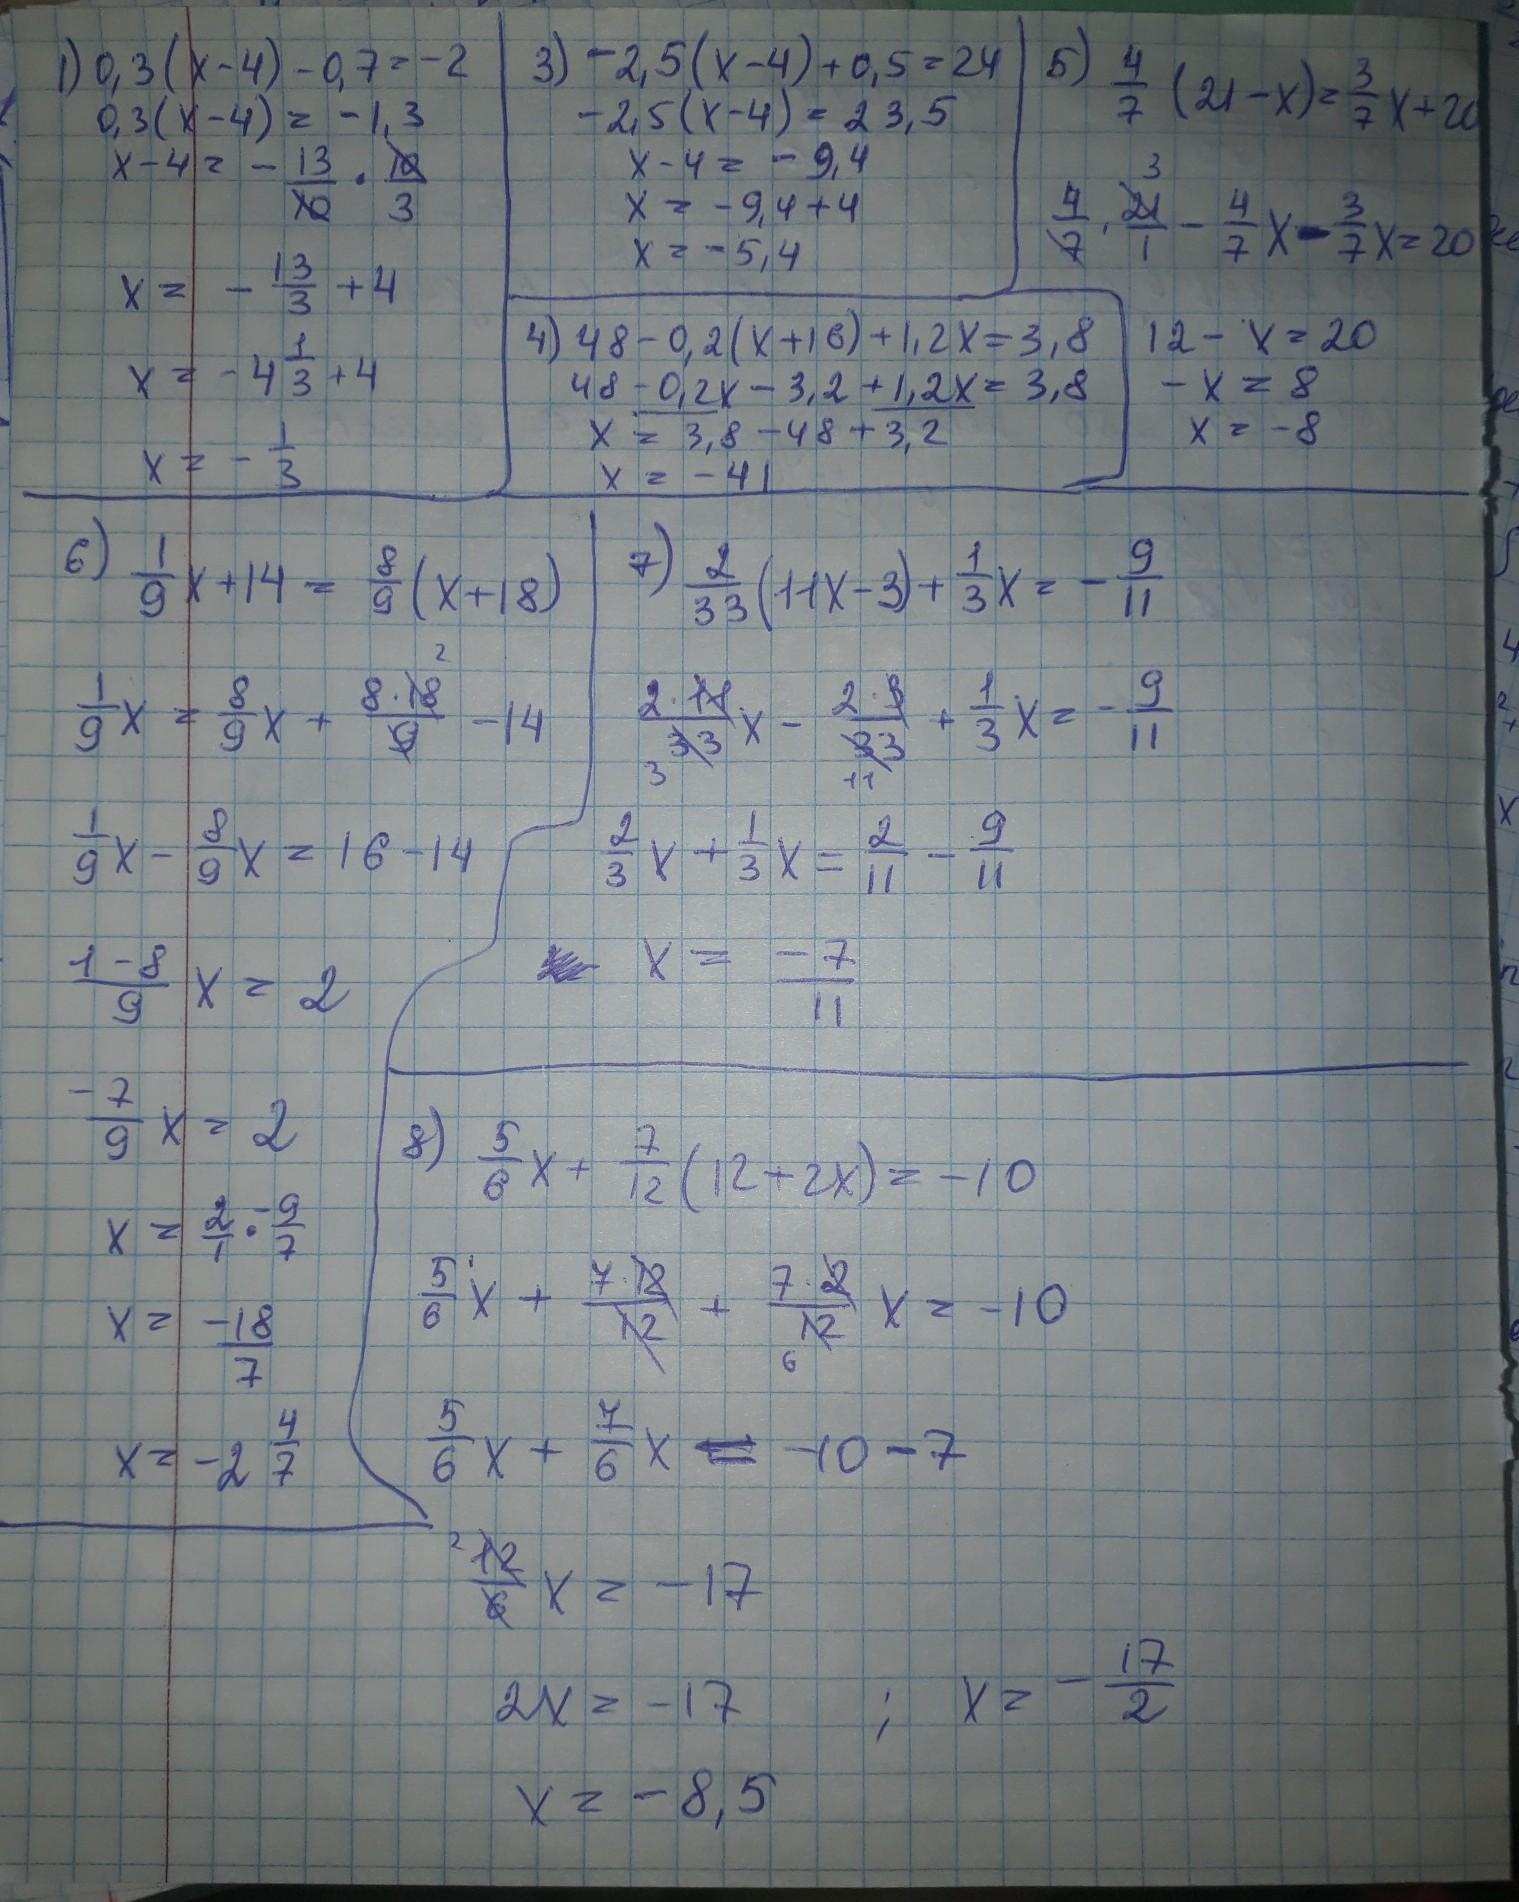 1) 0,3(x-4)-0,7=-2
0,3(x-4)= -1,3
x-4= -13/10 · 10/3
x= -13/3 +4
x= -4 1/3 +4
x= -1/3
3) -2,5(x-4)+0,5=24
-2,5(x-4)=23,5
x-4= -9,4
x= -9,4+4
x= -5,4
4) 48-0,2(x+16)+1,2x=3,8
48-0,2x-3,2+1,2x=3,8
x= 3,8-48+3,2
x= -41
5) 4/7 (21-x)= 3/7 x+20
3
4/7 · 21/1 - 4/7 x - 3/7 x=20
12- x=20
-x=8
x= -8
6) 1/9 x+14= 8/9 (x+18)
2
1/9 x = 8/9 x + 8·18/9 -14
1/9 x - 8/9 x = 16-14
1-8/9 x = 2
-7/9 x = 2
x = 2/1 · -9/7
x = -18/7
x= -2 4/7
7) 2/33 (11x-3)+ 1/3 x= -9/11
2·11/33 x - 2·3/33 + 1/3 x= -9/11
3 11
2/3 x + 1/3 x= 2/11 - 9/11
x = -7/11
8) 5/6 x+ 7/12 (12+2x)= -10
5/6 x + 7·12/12 + 7·2/12 x = -10
6
5/6 x + 7/6 x = -10-7
2 12/6 x = -17
2x = -17 ; x= -17/2
x= -8,5